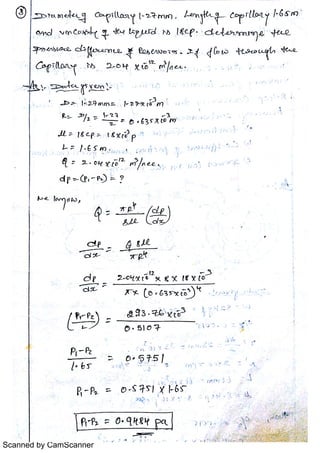 ③ Diameter of Capillary 1.27mm. Length of Capillary 1.65m
and viscosity of the liquid is 18cp. determine the
pressure difference of Reservoir. If flow through the
Capillary is 2.04 x 10¹² m³/sec.
Data given:
D = 1.27mm = 1.27x10⁻³m
R = D/2 = 1.27/2 = 0.635x10⁻³m
μ = 18cp = 18x10⁻³ p
L = 1.65m
Q = 2.04 x10¹² m³/sec.
dp = (P₁-P₂) = ?
we know,
Q = πR⁴/8μ (dp/dx)
dp/dx = Q 8μ/πR⁴
dp/dx = 2.04x10¹² x 8 x 18x10⁻³/π x (0.635x10⁻³)⁴
(P₁-P₂/L) = 293.76 x10⁻³/0.5107
P₁-P₂/1.65 = 0.5751
P₁-P₂ = 0.5751 x 1.65
P₁-P₂ = 0.9484 pa
Scanned by CamScanner